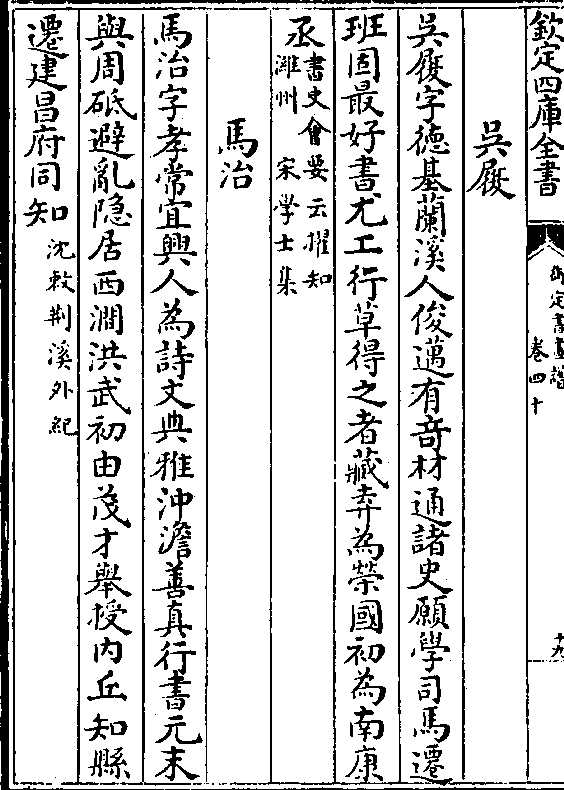 欽定四庫全書
御定書畫譜
卷四十
十九
吳履
吳履字德基蘭溪人俊邁有竒材通諸史願學司馬遷
班固最好書尤工行草得之者藏弆為榮國初為南康
丞書史會要云擢知
濰州　宋學士集
馬治
馬治字孝常宜興人為詩文典雅沖澹善真行書元末
與周砥避亂隐居西澗洪武初由茂才舉授内丘知縣
遷建昌府同知沈敕荆溪外紀